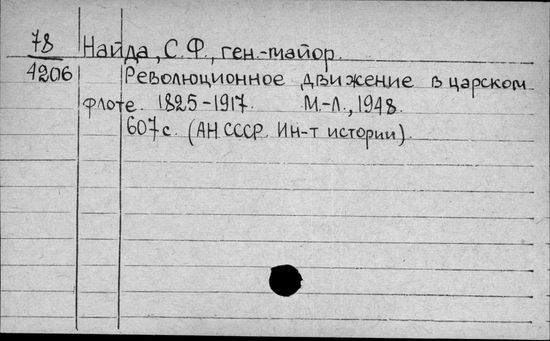 78 Найда, С.Ф., ген.-майор.
4206 Революционное движение в царском
флоте. 1825-1917. М.-Л., 1948.
607 с. (АН СССР. Ин-т истории).